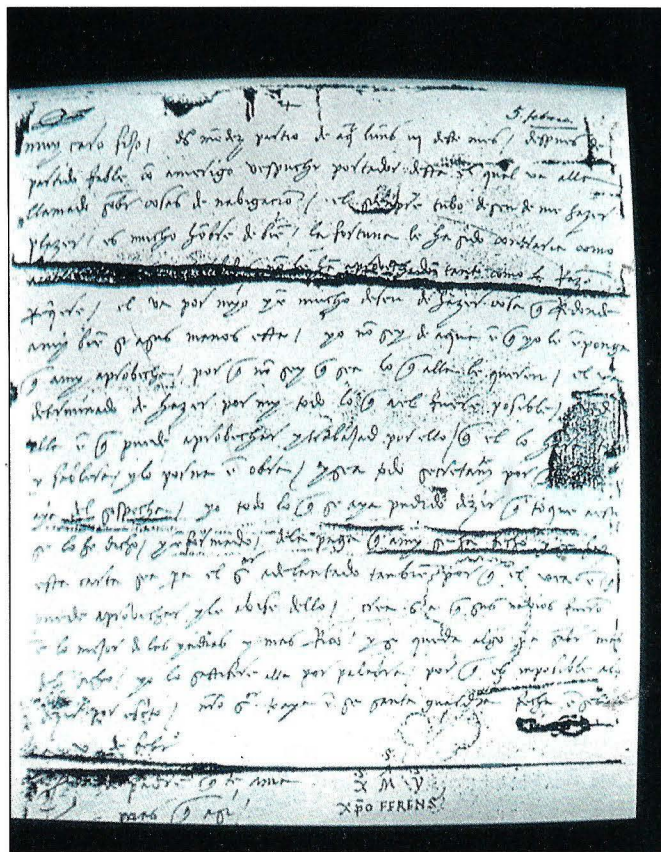 5 febrero
muy caro fijo / dº mēdez partio de aqi lunes iij deste mes / despues de
partido fable cō amerigo vespuchi portador desta el qual va alla
llamado sobr cosas de nabigaciō / el siempre tubo deseo de me hazer
plazer / es mucho hōbre de biē / la fortuna le ha sido cōtraria como
tanto como la razō
reqere / el va por myo y ē mucho deseo de hazer cosa q redonde
a my biē si a sus manos esta / yo nō sey de aqua ē q yo le ēponga
q a my aprobeche / por q nō sey q sea lo q alla le quierē / el va
determinado de hazer por my todo lo q a el fuere posible /
alla ē q puede aprobechar y trabajad por ello / q el lo
y fablera / y lo porna ē obra / y sea todo secretamē por
aya del sospecha / yo todo lo q se aya podido dezir q toque a esto
se lo he dicho / y ēformado / dela paga q a my se ha fecho y
esta carta sea pa el sʳ adelantado tambiē / por q el vea ē q
puede aprobechar y le abise dello / crea s. a. q sus nabios fuerō
ē lo mejor de las yndias y mas rico / y si queda algo pa sabr mas
del dicho / yo lo satisfare alla por palabra / por q es imposible a lo
dezir por escrito / nro sʳ te aya ē su santa guardia fecha ē
a v de febrº
tu padre q te ama
mas q a sy
.S.
.S. A .S.
X M Y
Xpō FERENS